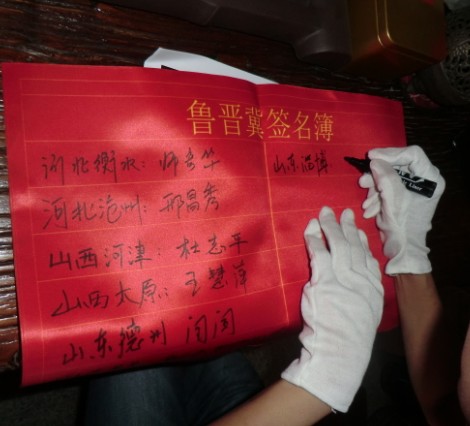 鲁晋冀签名簿
河北衡水：师秀华
河北沧州：邢昌秀
山西河津：杜志平
山西太原：王慧萍
山东德州 闫闰
山东淄博